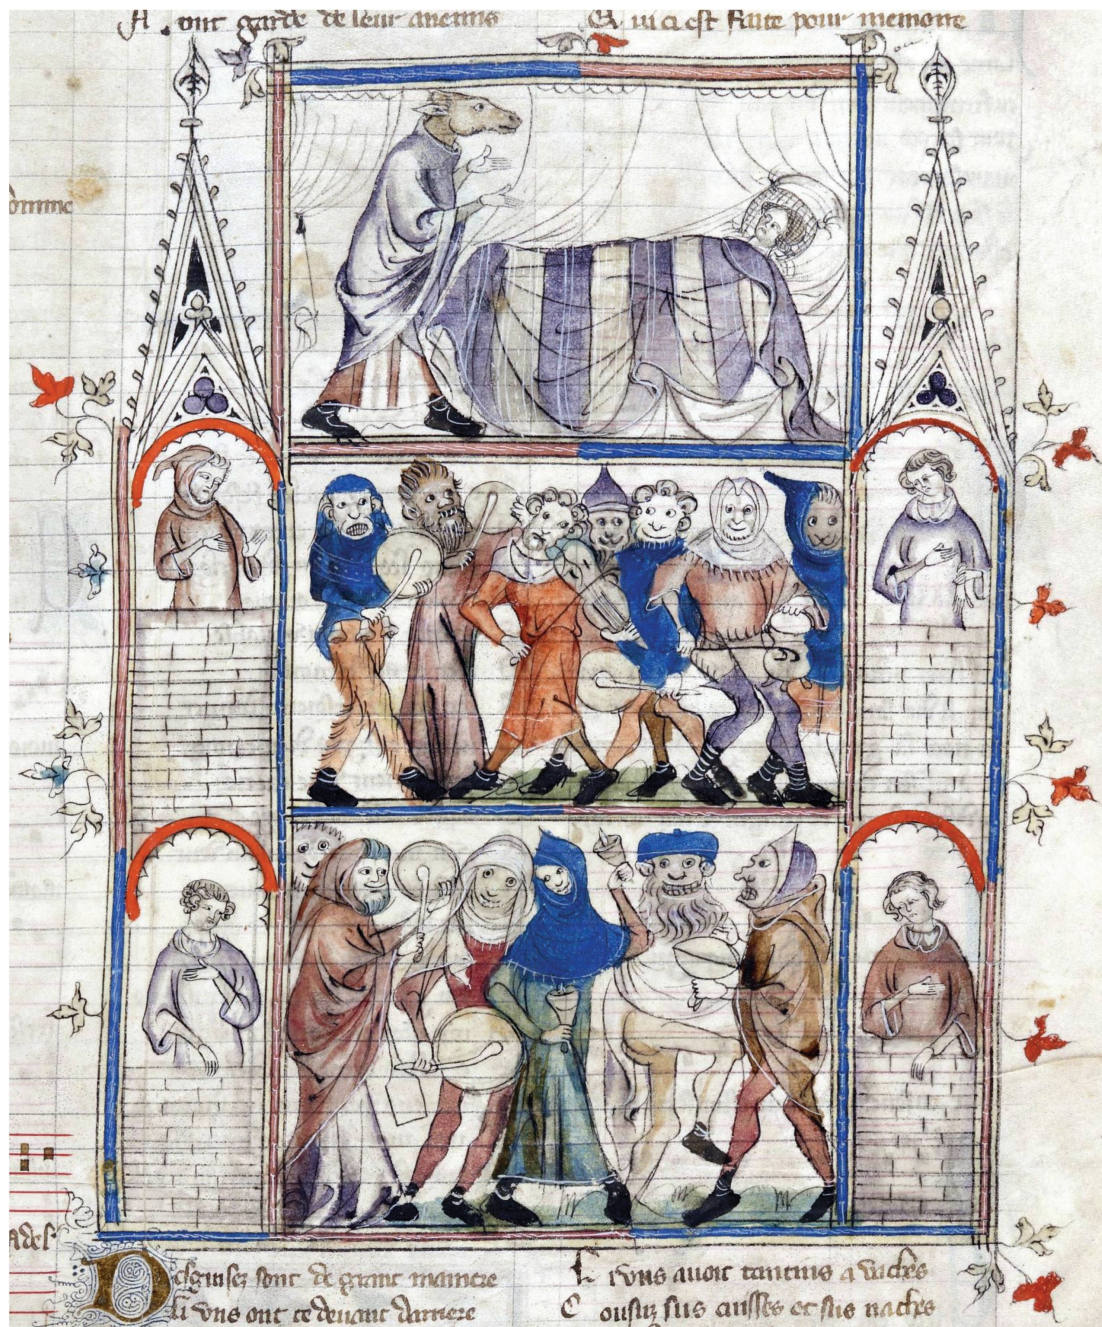 ont garde de leur anemis
est faite pour memoire
omme
ades
Desguisez sont de grant maniere
Li uns ont ce devant derriere
Li uns avoit tantins a vaches
Cousuz sus cuisses et sus naches